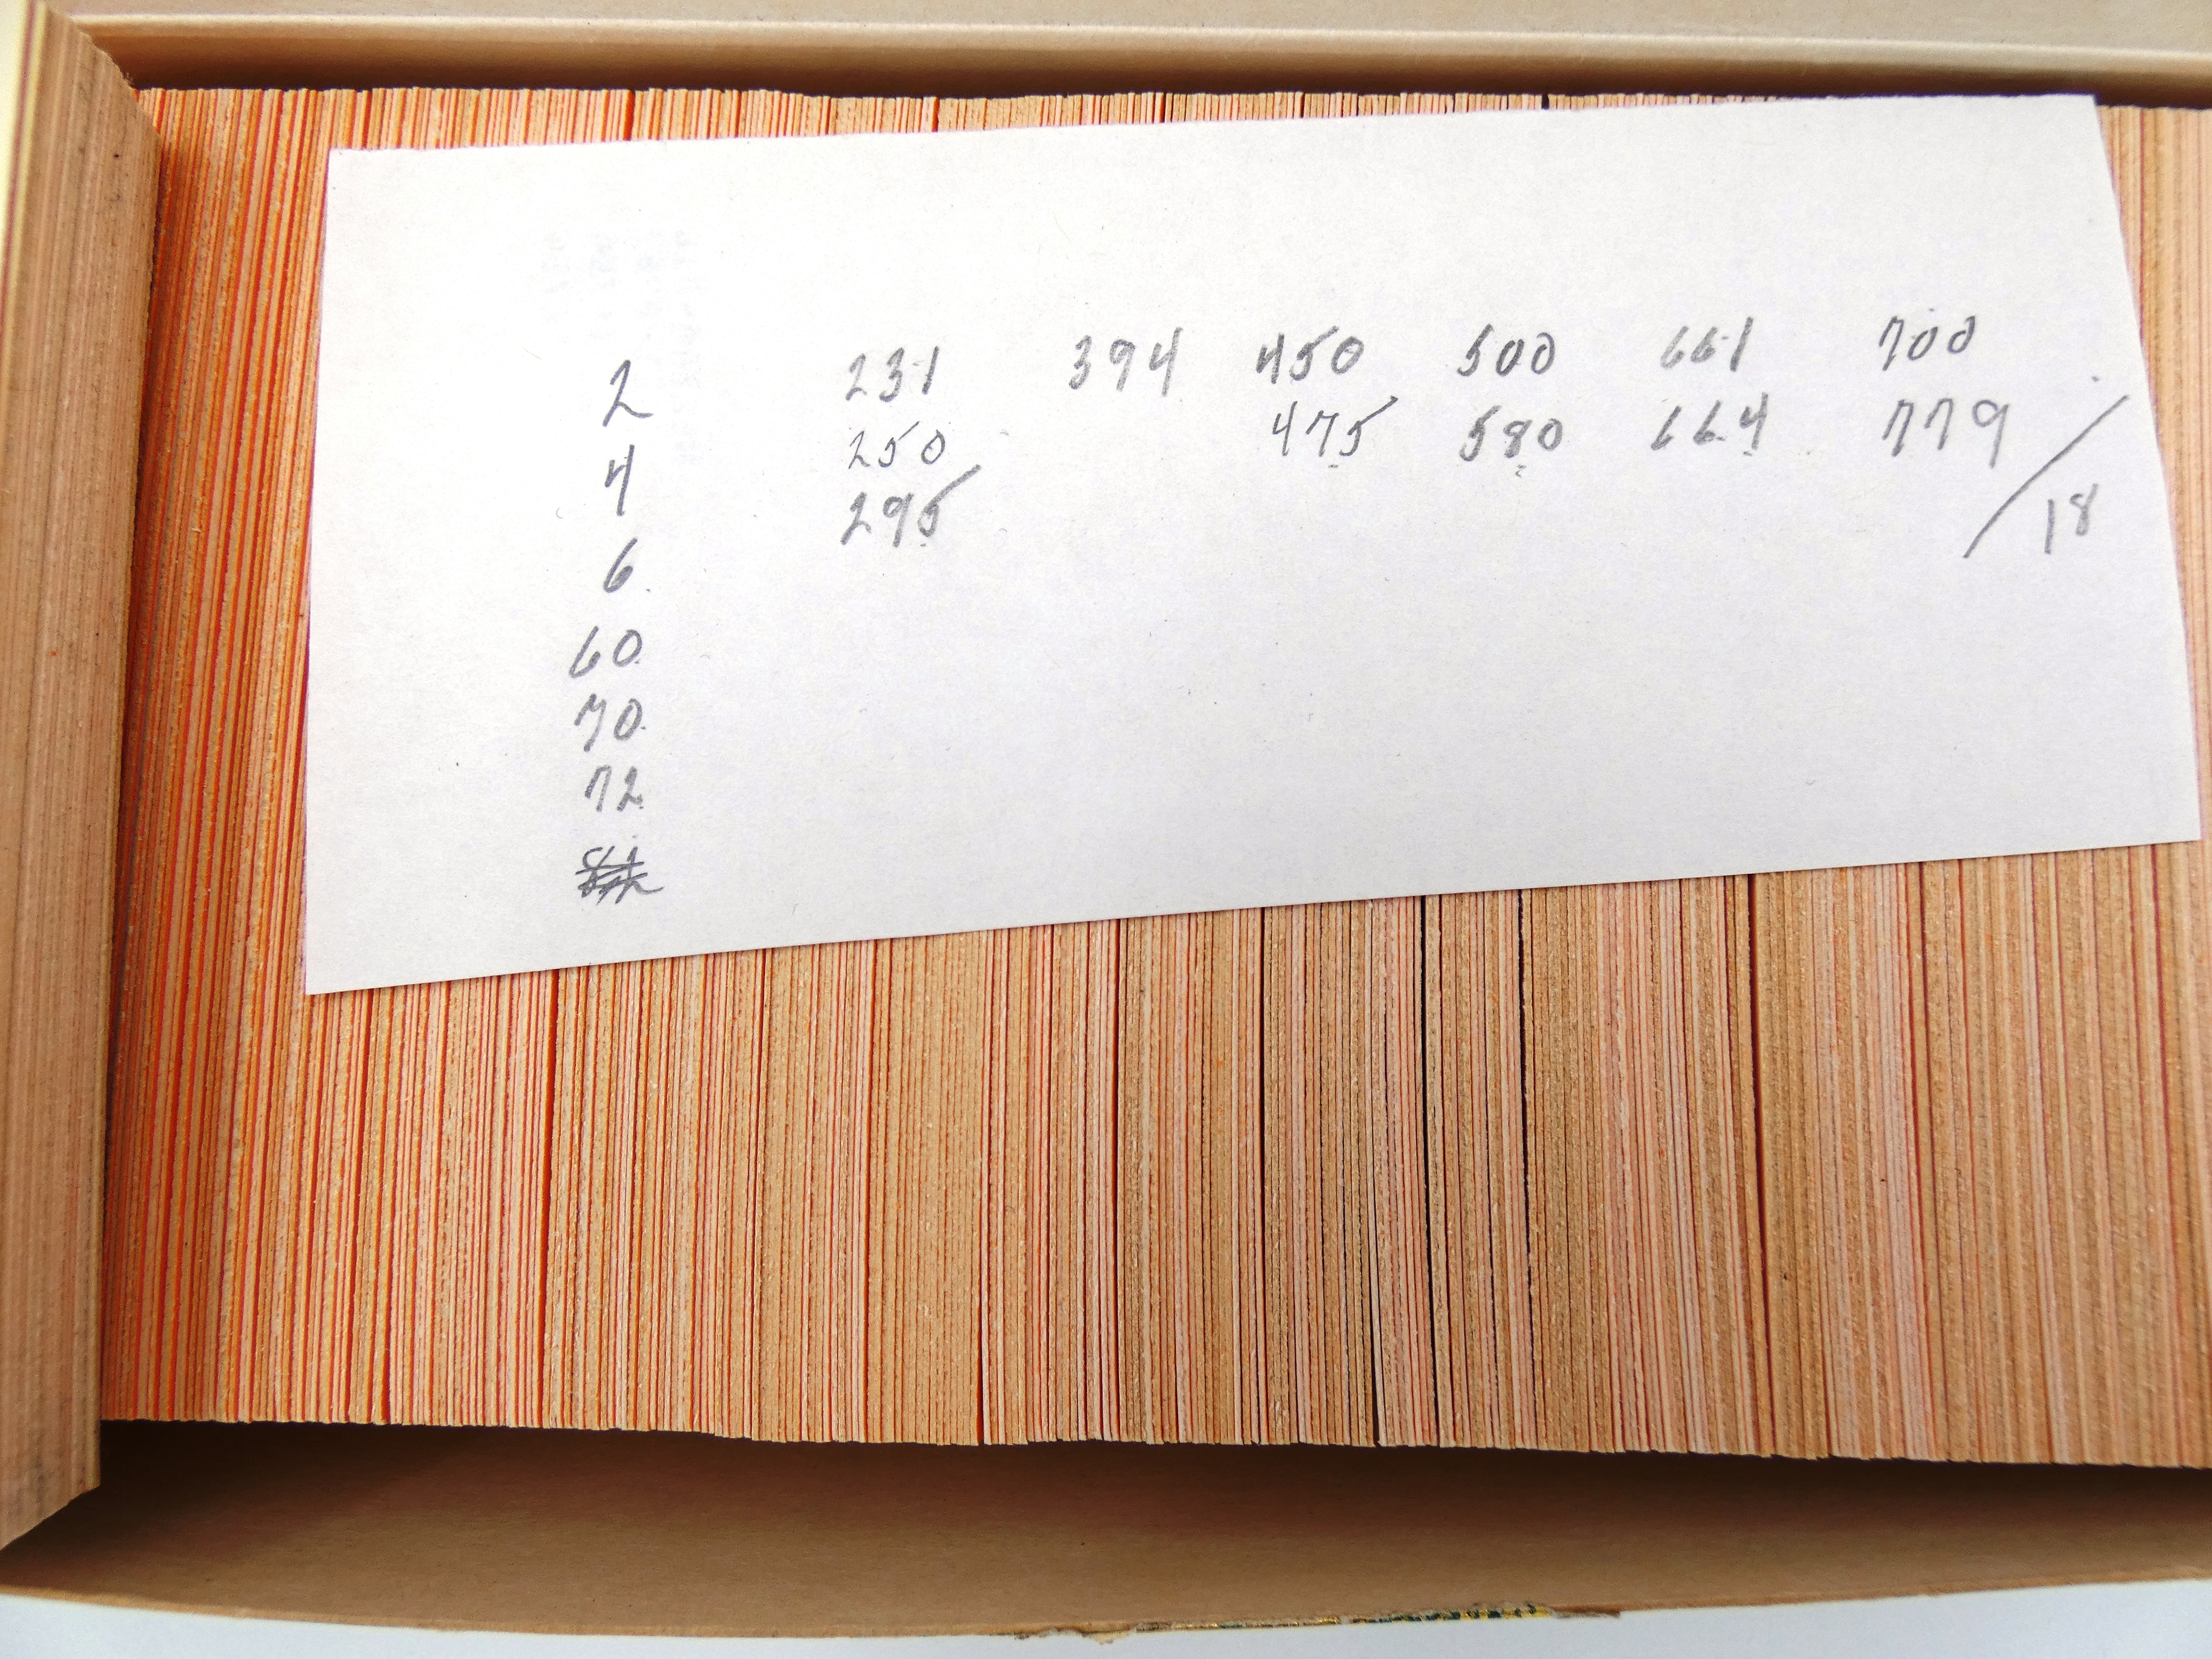 2 231 394 450 500 661 700
4 250 475 580 664 779
6 295 / 18
60
70
72